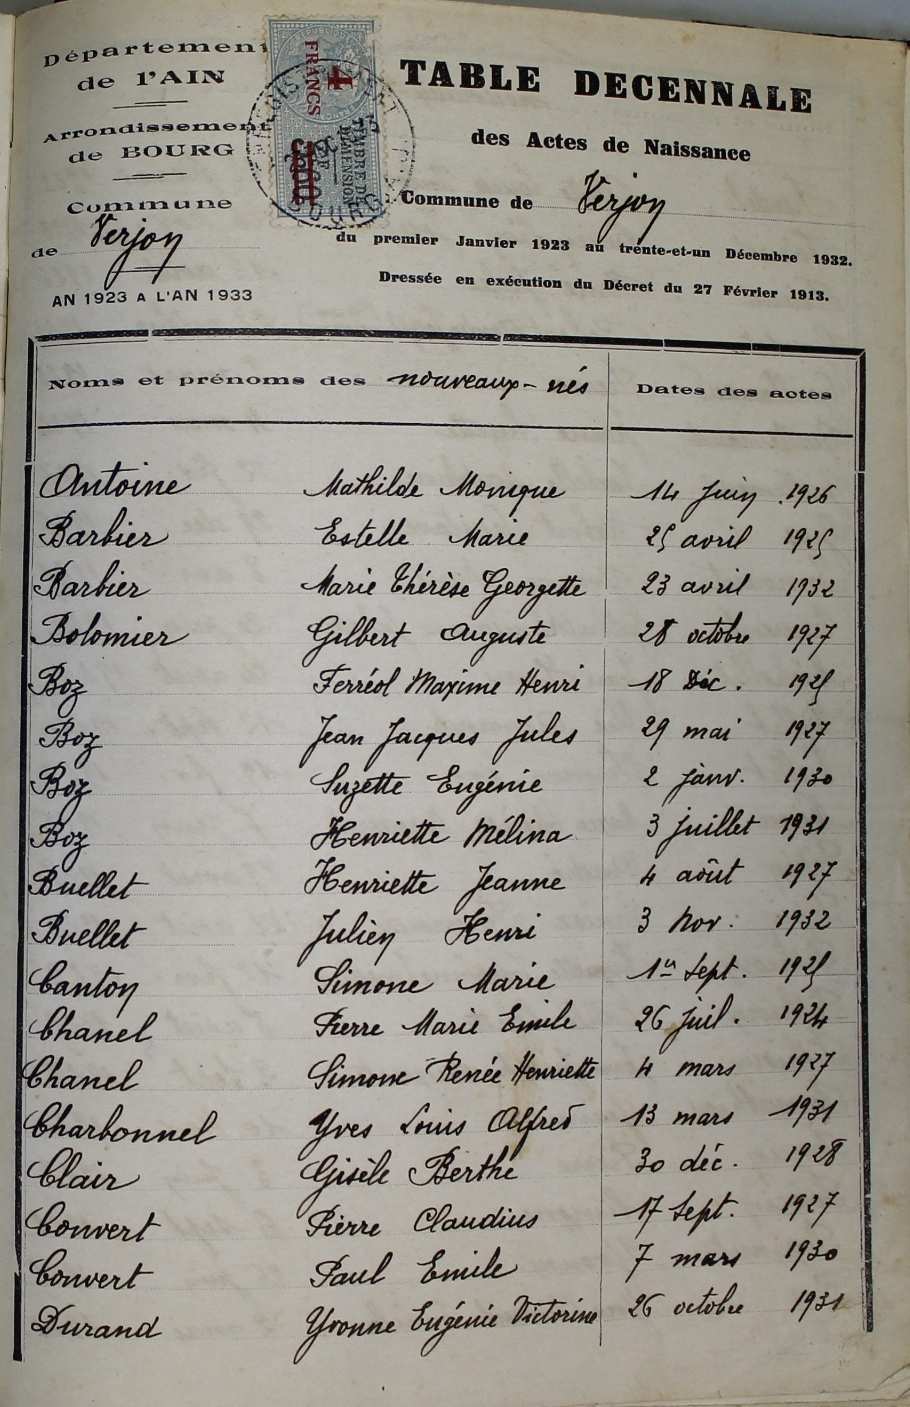 Département
de l'AIN
Arrondissement
de BOURG
Commune
de Verjon
AN 1923 A L'AN 1933
4
FRANCS
TIMBRE DE
DIMENSION
TABLE DECENNALE
des Actes de Naissance
Commune de Verjon
du premier Janvier 1923 au trente-et-un Décembre 1932.
Dressée en exécution du Décret du 27 Février 1913.
Noms et prénoms des nouveaux-nés Dates des actes
Antoine Mathilde Monique 14 Juin 1926
Barbier Estelle Marie 25 avril 1925
Barbier Marie Thérèse Georgette 23 avril 1932
Bolomier Gilbert Auguste 28 octobre 1927
Boz Ferréol Maxime Henri 18 Déc. 1925
Boz Jean Jacques Jules 29 mai 1927
Boz Suzette Eugénie 2 janv. 1930
Boz Henriette Mélina 3 juillet 1931
Buellet Henriette Jeanne 4 août 1927
Buellet Julien Henri 3 Nov. 1932
Canton Simone Marie 1er Sept. 1925
Chanel Pierre Marie Emile 26 juil. 1924
Chanel Simone Renée Henriette 4 mars 1927
Charbonnel Yves Louis Alfred 13 mars 1931
Clair Gisèle Berthe 30 déc. 1928
Convert Pierre Claudius 17 Sept. 1927
Convert Paul Emile 7 mars 1930
Durand Yvonne Eugénie Victorine 26 octobre 1931